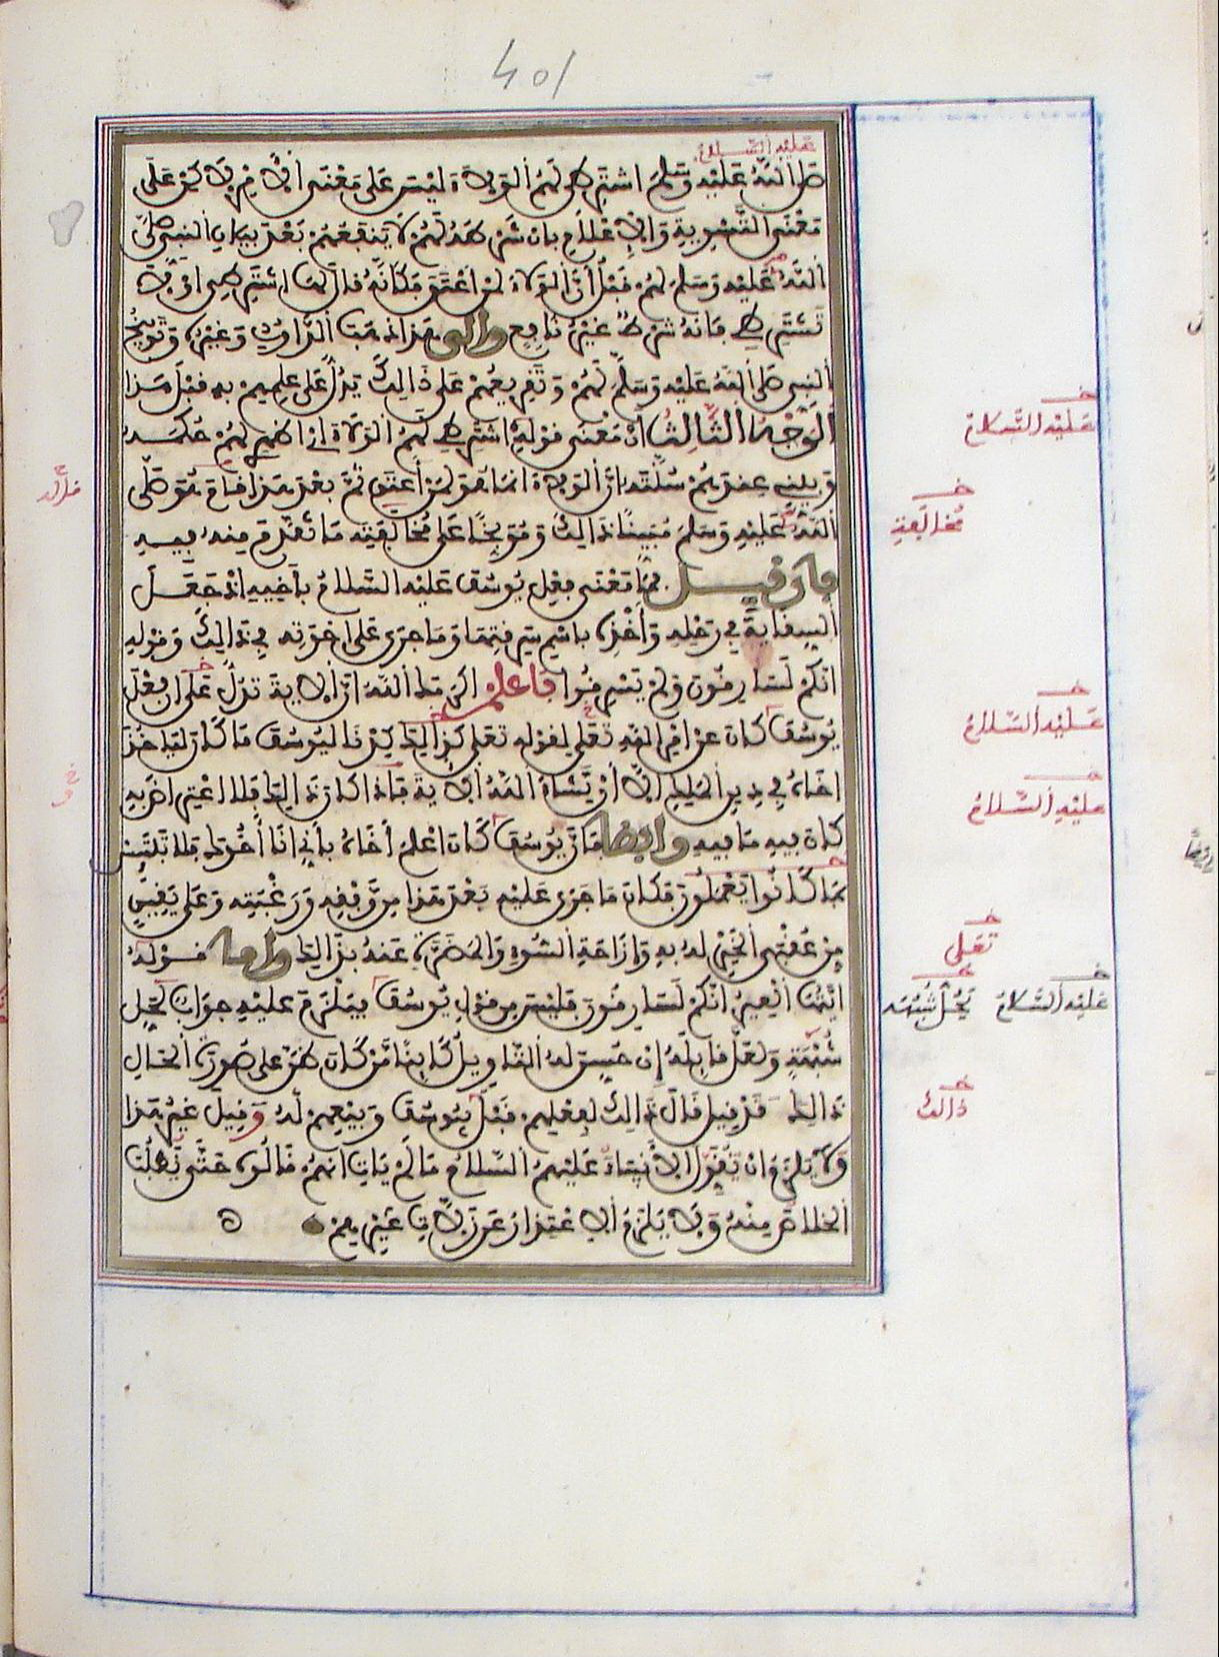 401
عليه السلام
صلى الله عليه وسلم اشترطي لهم الولاء ليس على معنى الأمر لكن على
معنى التسوية والإعلام بأن شرطه لهم لا ينفعهم بعد بيان النبي صلى
الله عليه وسلم لهم قبل أن الولاء لمن أعتق فكأنه قال لها اشترطي أو لا
تشترطي فإنه شرط غير نافع وإلى هذا ذهب الداودي وغيره وتوبيخ
النبي صلى الله عليه وسلم لهم وتقريعهم على ذالك يدل على علمهم به قبل هذا
الوجه الثالث أن معنى قوله اشترطي لهم الولاء أي أظهري لهم حكمه
وبيني عندهم سنته أن الولاء إنما هو لمن أعتق ثم بعد هذا قام هو صلى
الله عليه وسلم مبينا ذالك وموبخا على مخالفته ما تقدم منه فيه
فإن قيل فما معنى فعل يوسف عليه السلام بأخيه إذ جعل
السقاية في رحله وأخذه باسم سرقتها وما جرى على إخوته في ذالك وقوله
إنكم لسارقون ولم يسرقوا فاعلم أكرمك الله أن الآية تدل على أن فعل
يوسف كان عن أمر الله تعلى لقوله تعلى كذالك كدنا ليوسف ما كان ليأخذ
أخاه في دين الملك إلا أن يشاء الله الآية فإذا كان ذالك فلا اعتراض به
كان فيه ما فيه وأيضا فإن يوسف كان أعلم أخاه بأني أنا أخوك فلا تبتئس
بما كانوا يعملون فكان ما جرى عليه بعد هذا من وفقه ورغبته وعلى يقين
من عقبى الخير له به وإزاحة السوء والمضرة عنه بذالك وأما قوله
أيتها العير إنكم لسارقون فليس من قول يوسف فيلزم عليه جواب لحل
شبهة ولعل قائله إن حسن له التأويل كائنا من كان ظن على صورة الحال
ذالك قد قيل قال ذالك لفعلهم قبل بيوسف وبيعهم له وقيل غير هذا
ولا يلزم أن نقول الأنبياء عليهم السلام ما لم يات أنهم قالوه حتى نطلب
الخلاص منه ولا يلزم الاعتذار عن زلات غيرهم
عليه السلام
مخالفة
عليه السلام
عليه السلام
تعلى
عليه السلام
يحل شبهه
ذالك